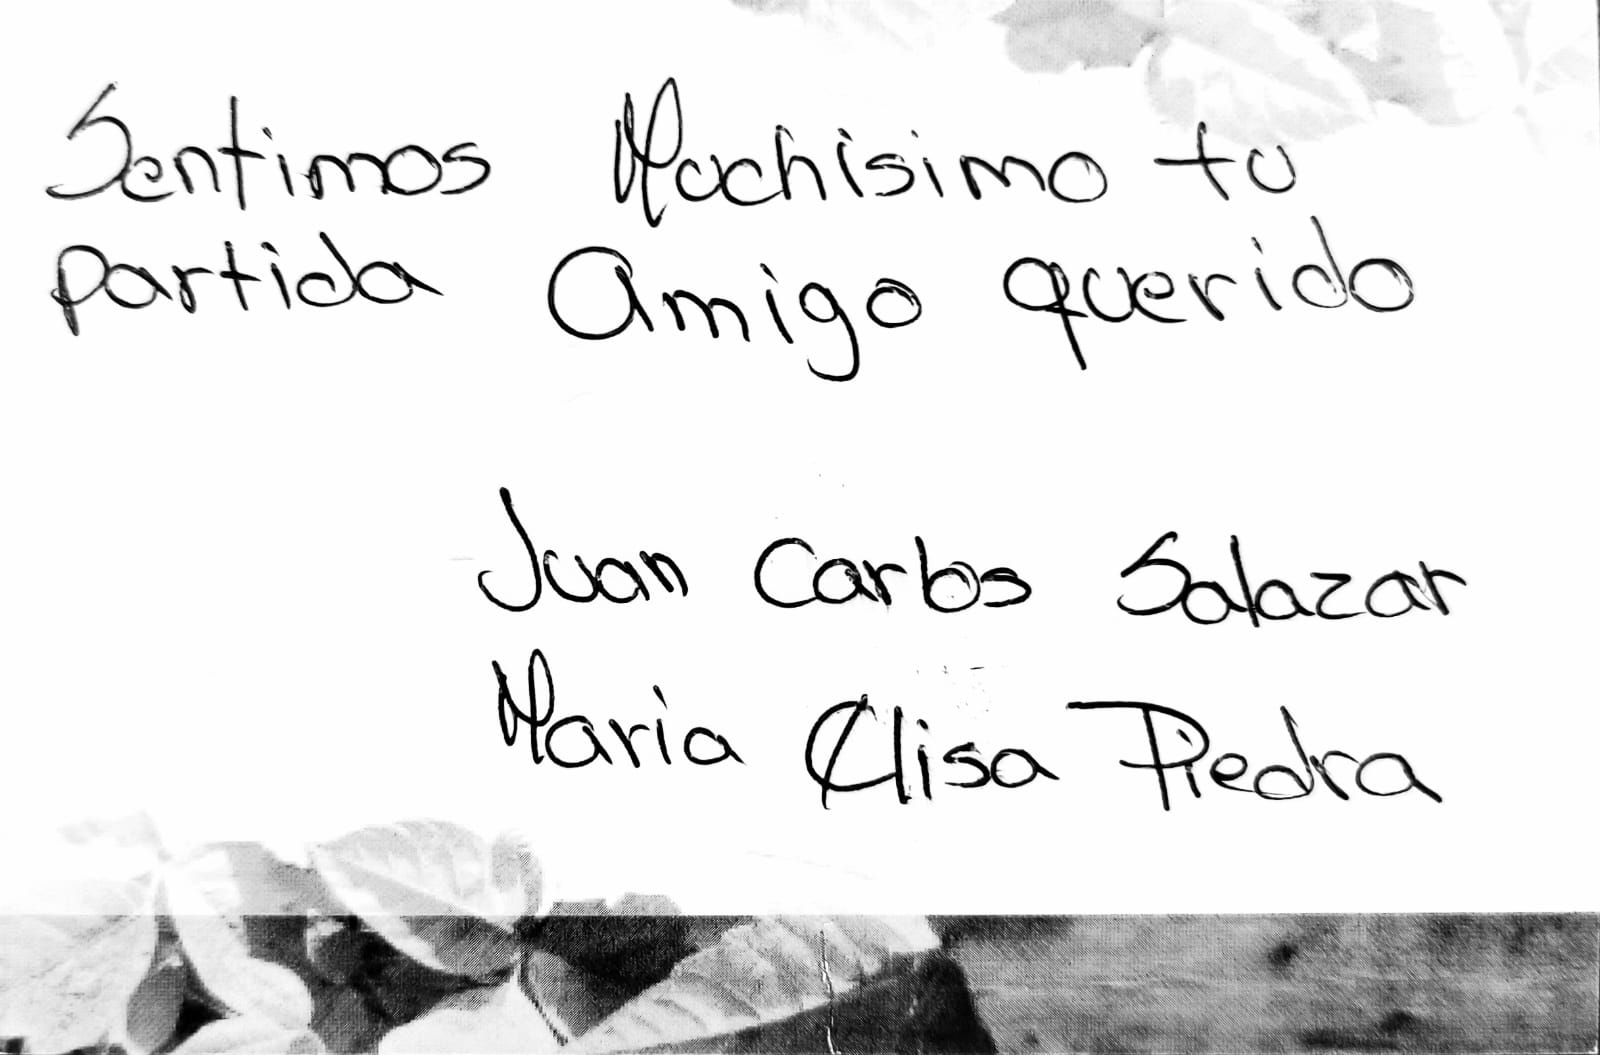 Sentimos Muchisimo tu
partida Amigo querido
Juan Carlos Salazar
Maria Elisa Piedra